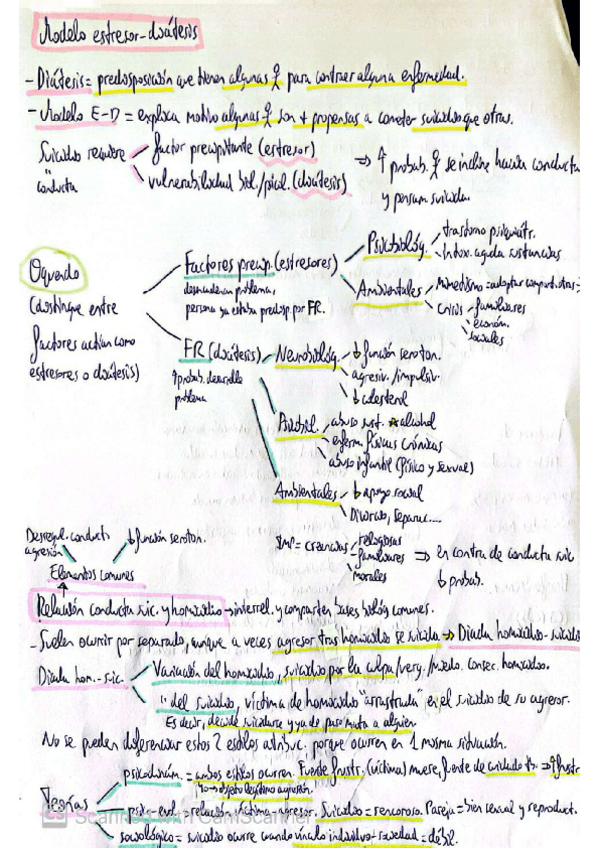 Modelo estresor-diátesis
- Diátesis = predisposición que tienen algunas para contraer alguna enfermedad.
- Modelo E-D = explica motivo algunas son + propensas a cometer suicidio que otras.
Suicidio requiere
conducta
factor precipitante (estresor)
vulnerabilidad biol./psicol. (diátesis)
⇒ ↑ probab. se incline hacia conducta
y pensam. suicida
Oquendo
(distingue entre
factores actúan como
estresores o diátesis)
Factores precip. (estresores)
desencadenan problema,
persona ya estaba predisp. por FR.
Psicobiológ.
trastorno psiquiátr.
intox. aguda sustancias
Ambientales
Mimetismo = adoptar comport. otras
Crisis
familiares
económ.
sociales
FR (diátesis)
↑ probab. desarrolle
problema
Neurobiológ.
↓ función seroton.
agresiv./impulsiv.
↓ colesterol
Psicobiol.
abuso sust. alcohol
enferm. físicas crónicas
abuso infantil (físico y sexual)
Ambientales
↓ apoyo social
Divorcio, Separac....
Imp = creencias
religiosas
familiares
morales
⇒ en contra de conducta suic
↓ probab.
Desregul. conduct.
agresión
↓ función seroton.
Elementos comunes
Relación conducta suic. y homicidio → interrel. y comparten bases biológ comunes.
- Suelen ocurrir por separado, aunque a veces agresor tras homicidio se suicida → Díada homicidio-suicidio
Díada hom.-suic.
Variación del homicidio, suicidio por la culpa/verg./miedo. consec. homicidio.
" del suicidio, víctima de homicidio "arrastrada" en el suicidio de su agresor.
Es decir, decide suicidarse y ya de paso mata a alguien.
No se pueden diferenciar estos 2 estilos atribuc. porque ocurren en 1 misma situación.
Teorías
psicodinám. = ambos estilos ocurren. Fuente frustr. (víctima) muere, fuente de cuidado tb. ⇒ ↑ frustr
no objeto legítimo agresión.
psic-evol. = relación víctima-agresor. Suicidio = rencoroso. Pareja = bien sexual y reproduct.
sociológico = suicidio ocurre cuando vínculo individuo + sociedad = débil.
CS Scanned with CamScanner